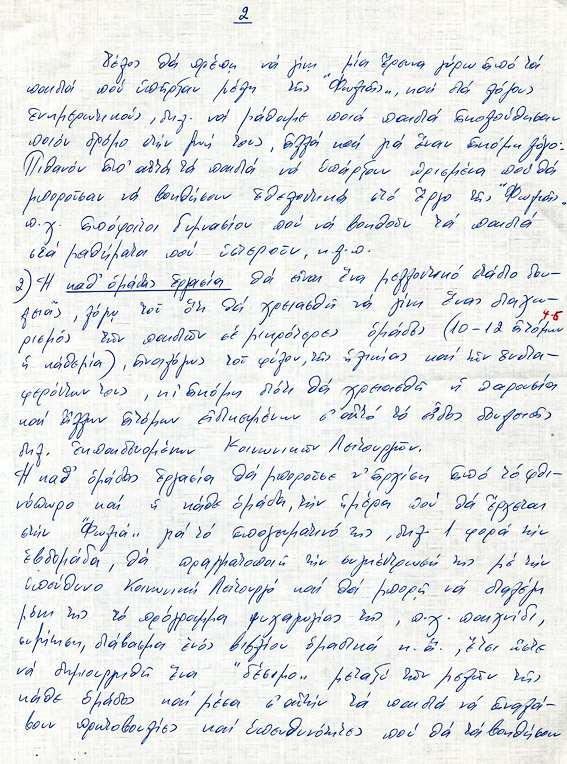 2
Τέλος θά πρέπη νά γίνη μία ἔρευνα γύρω ἀπό τά
παιδιά πού ὑπῆρξαν μέλη τῆς "Φωλιᾶς", καί διά λόγους
ἐνημερωτικούς, δηλ. νά μάθωμε ποιά παιδιά ἀκολούθησαν
ποιόν δρόμο στήν ζωή τους, ἀλλά καί γιά ἕναν ἀκόμη λόγο:
Πιθανόν ἀπ' αὐτά τά παιδιά νά ὑπάρξουν ὡρισμένα πού θά
μποροῦσαν νά βοηθήσουν ἐθελοντικά στό ἔργο τῆς "Φωλιᾶς"
π.χ. ἀπόφοιτοι Γυμνασίου πού νά βοηθοῦν τά παιδιά
στά μαθήματα πού ὑστεροῦν, κ.λ.π.
2) Ἡ καθ' ὁμάδας ἐργασία θά εἶναι ἕνα μελλοντικό στάδιο δου-
λειᾶς, λόγω τοῦ ὅτι θά χρειασθῆ νά γίνη ἕνας διαχω-
ρισμός τῶν παιδιῶν σέ μικρότερες ὁμάδες (10-12 ἀτόμων
4-5
ἡ καθεμία), ἀναλόγως τοῦ φύλου, τῆς ἡλικίας καί τῶν ἐνδια-
φερόντων τους, κι ἀκόμη διότι θά χρειασθῆ ἡ παρουσία
καί ἄλλων ἀτόμων εἰδικευμένων σ' αὐτό τό εἶδος δουλειᾶς
δηλ. ἐκπαιδευμένων Κοινωνικῶν Λειτουργῶν.
Ἡ καθ' ὁμάδας ἐργασία θά μποροῦσε ν' ἀρχίση ἀπό τό φθι-
νόπωρο καί ἡ κάθε ὁμάδα, τήν ἡμέρα πού θά ἔρχεται
στήν "Φωλιά" γιά τό ἀπογευματινό της, δηλ. 1 φορά τήν
ἑβδομάδα, θά πραγματοποιῆ τήν συγκέντρωσή της μέ τήν
ὑπεύθυνο Κοινωνική Λειτουργό καί θά μπορῆ νά διαλέγη
μόνη της τό πρόγραμμα ψυχαγωγίας της, π.χ. παιχνίδι,
συζήτηση, διάβασμα ἑνός βιβλίου ὁμαδικά κ.ἄ., ἔτσι ὥστε
νά δημιουργηθῆ ἕνα "δέσιμο" μεταξύ τῶν μελῶν τῆς
κάθε ὁμάδος καί μέσα σ' αὐτήν τά παιδιά νά ἀναλά-
βουν πρωτοβουλίες καί ὑπευθυνότητες πού θά τά βοηθήσουν